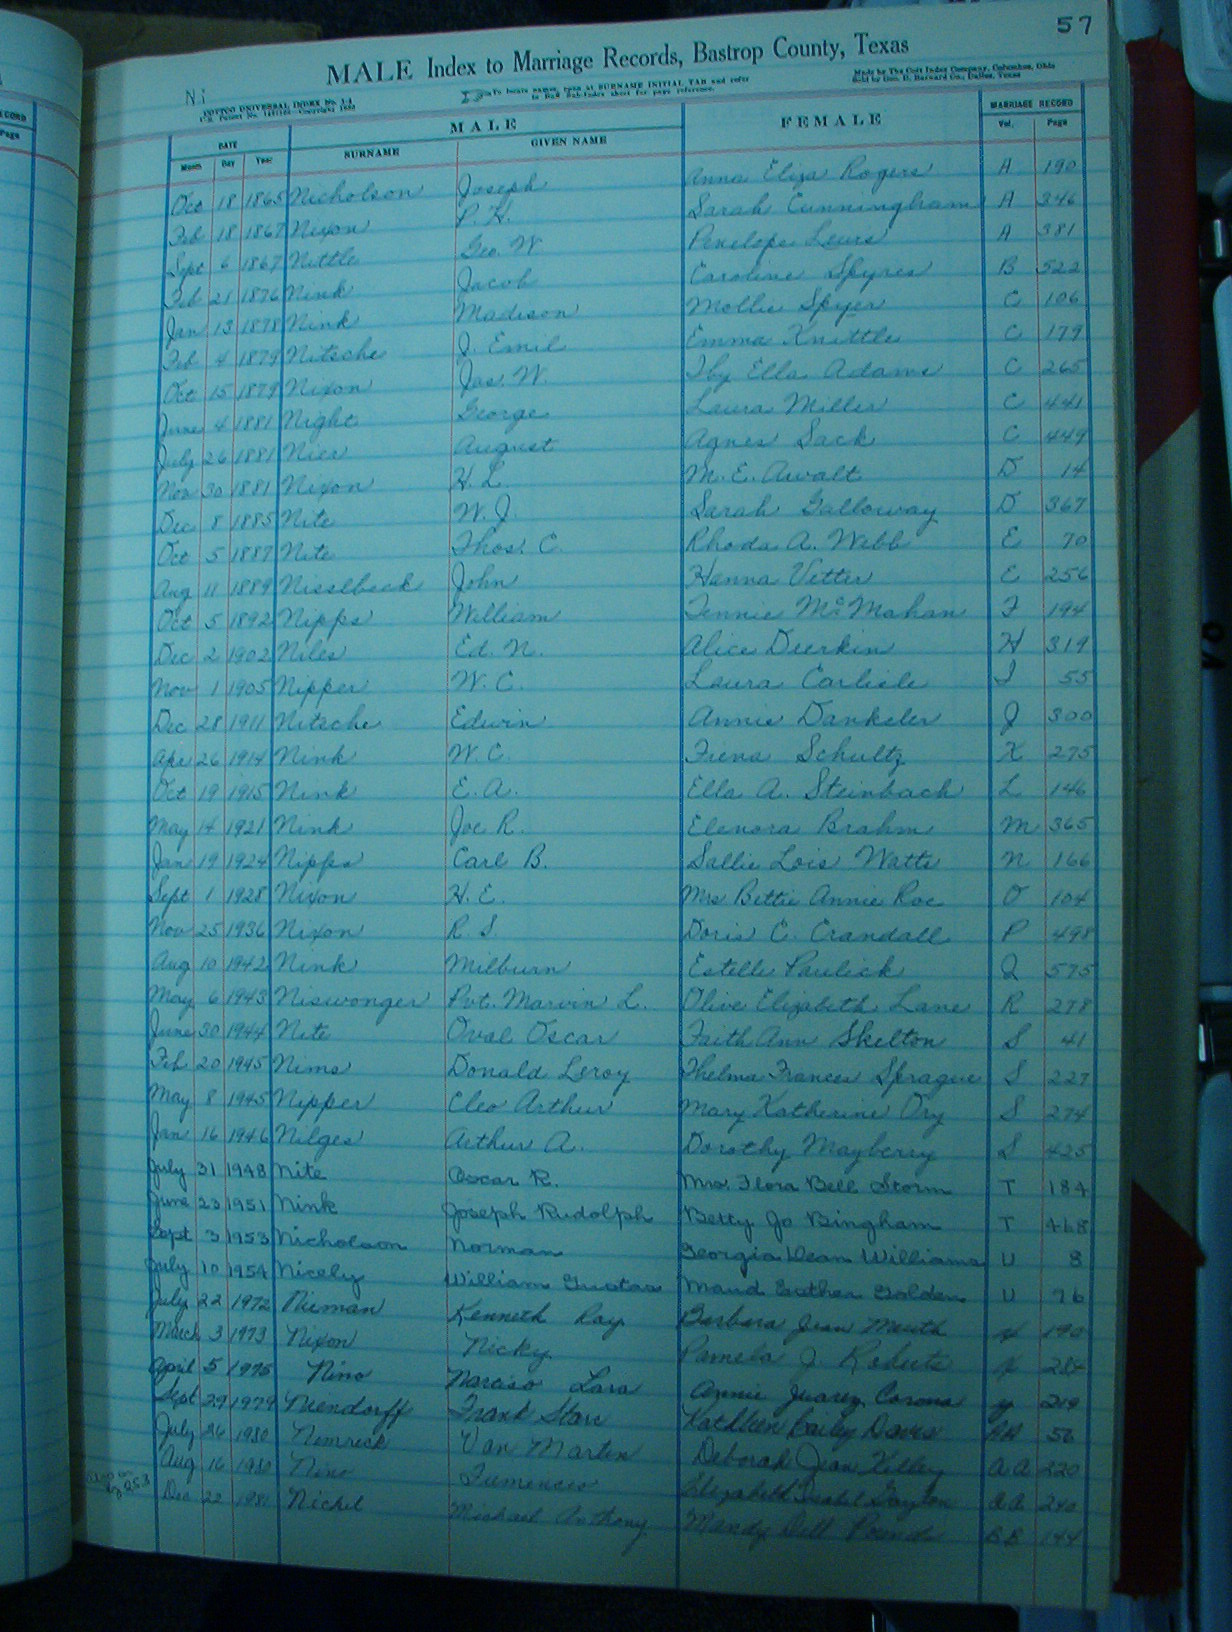 57
MALE Index to Marriage Records, Bastrop County, Texas
Ni
COTTCO UNIVERSAL INDEX No. 1-A
To locate names, open at SURNAME INITIAL TAB and refer
to Sub-Index sheet for page reference.
Made by The Cott Index Company, Columbus, Ohio
Sold by Geo. D. Barnard Co., Dallas, Texas
ECORD
Page
DATE MALE FEMALE MARRIAGE RECORD
Month Day Year SURNAME GIVEN NAME Vol. Page
Oct 18 1865 Nicholson Joseph Anna Eliza Rogers A 190
Feb 18 1867 Nixon P. K. Sarah Cunningham A 346
Sept 6 1867 Nittle Geo. W. Penelope Lewis A 381
Feb 21 1876 Nink Jacob Caroline Spyres B 522
Jan 13 1878 Nink Madison Mollie Spyer C 106
Feb 4 1879 Nitsche J. Emil Emma Knittle C 179
Oct 15 1879 Nixon Jas. W. Iby Ella Adams C 265
June 4 1881 Night George Laura Miller C 441
July 26 1881 Nier August Agnes Sack C 449
Nov 30 1881 Nixon H. L. M. E. Awalt D 14
Dec 8 1885 Nite W. J. Sarah Galloway D 367
Oct 5 1887 Nite Thos. C. Rhoda A. Webb E 70
Aug 11 1889 Nisselbeck John Hanna Vetter E 256
Oct 5 1892 Nipps William Tennie McMahan F 194
Dec 2 1902 Niles Ed. N. Alice Deerkin H 319
Nov 1 1905 Nipper W. C. Laura Carlisle I 55
Dec 28 1911 Nitsche Edwin Annie Dankeler J 300
Apr 26 1914 Nink W. C. Friena Schultz K 275
Oct 19 1915 Nink E. A. Ella A. Steinbach L 146
May 14 1921 Nink Joe R. Elenora Brahm M 365
Jan 19 1924 Nipps Carl B. Sallie Lois Watts N 166
Sept 1 1928 Nixon H. E. Mrs Bettie Annie Roe O 104
Nov 25 1936 Nixon R. S. Doris C. Crandall P 498
Aug 10 1942 Nink Milburn Estelle Paulick Q 575
May 6 1943 Niswonger Pvt. Marvin L. Olive Elizabeth Lane R 278
June 30 1944 Nite Oval Oscar Faith Ann Skelton S 41
Feb 20 1945 Nims Donald Leroy Thelma Frances Sprague S 227
May 8 1945 Nipper Cleo Arthur Mary Katherine Ory S 274
Jan 16 1946 Nilges Arthur A. Dorothy Mayberry S 425
July 31 1948 Nite Oscar R. Mrs. Flora Bell Storm T 184
June 23 1951 Nink Joseph Rudolph Betty Jo Bingham T 468
Sept 3 1953 Nicholson Norman Georgia Dean Williams U 8
July 10 1954 Nicely William Gustav Maud Esther Golden U 76
July 22 1972 Nieman Kenneth Ray Barbara Jean Meuth 190
March 3 1973 Nixon Nicky Pamela J. Roberts 284
April 5 1975 Nino Narciso Lara Annie Juarez Corona y 219
Sept 29 1979 Niendorff Frank Starr Kathleen Bailey Davis AA 56
July 26 1980 Nimrick Van Martin Deborah Jean Kelley AA 220
Aug 16 1980 Nino Elizabeth Isabel Gayton AA 240
Dec 22 1981 Nichel Michael Anthony Mandy Dell Pounds BB 144